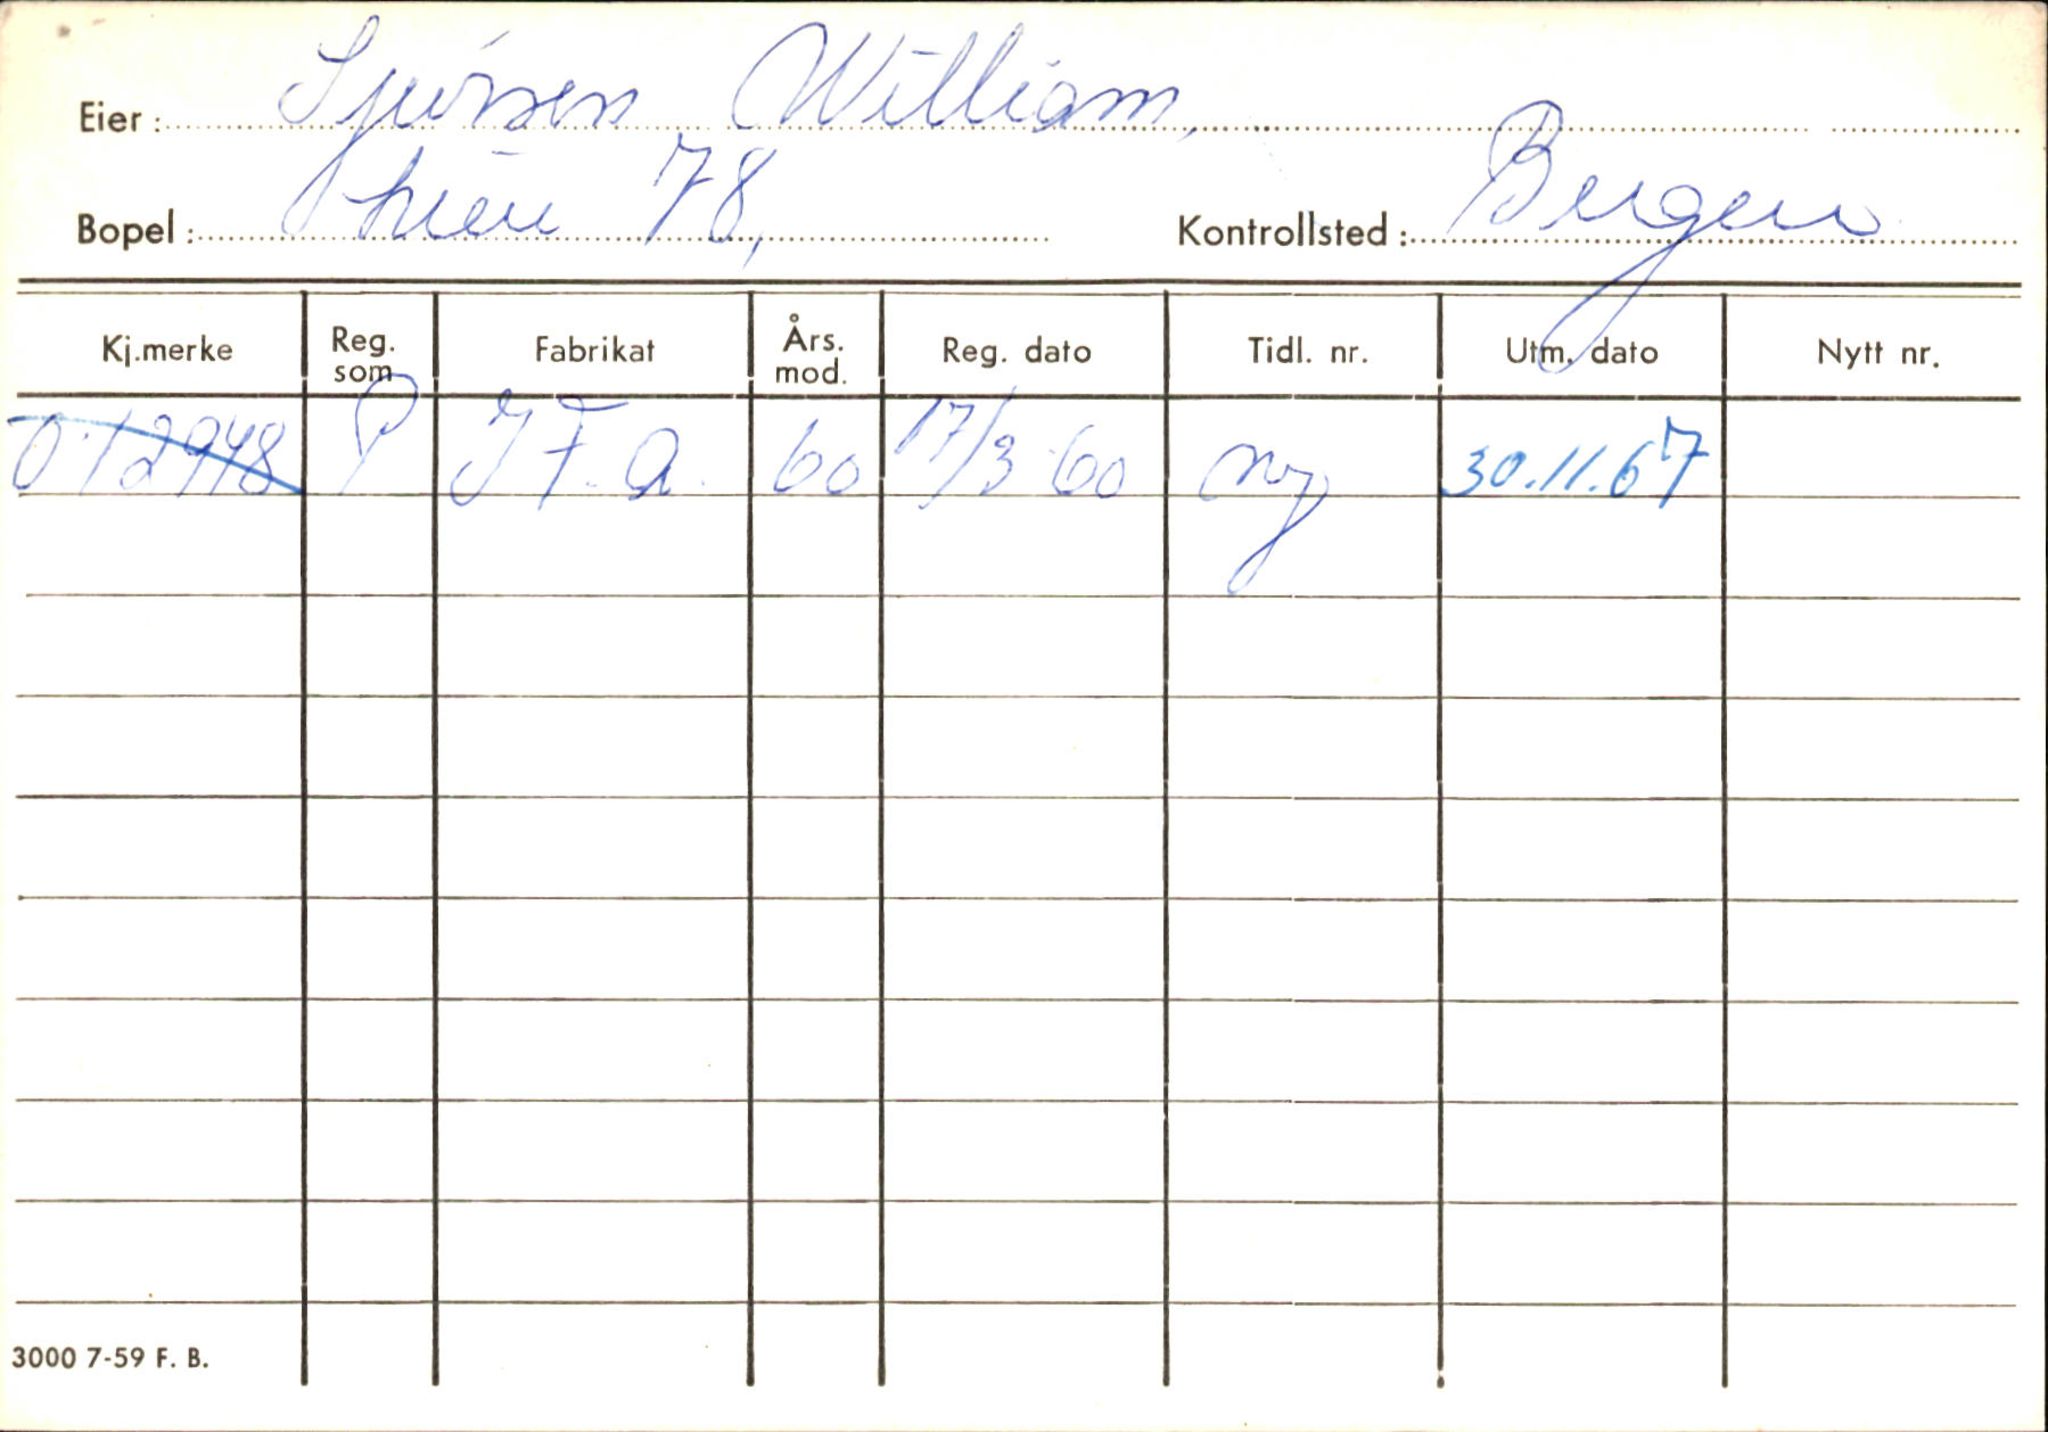 Eier: William,
Bopel: 78, Kontrollsted: Bergen
Kj.merke Reg. som Fabrikat Års. mod. Reg. dato Tidl. nr. Utm. dato Nytt nr.
O-12948 P I F. A. 60 17/3-60 ny 30.11.67
3000 7-59 F. B.